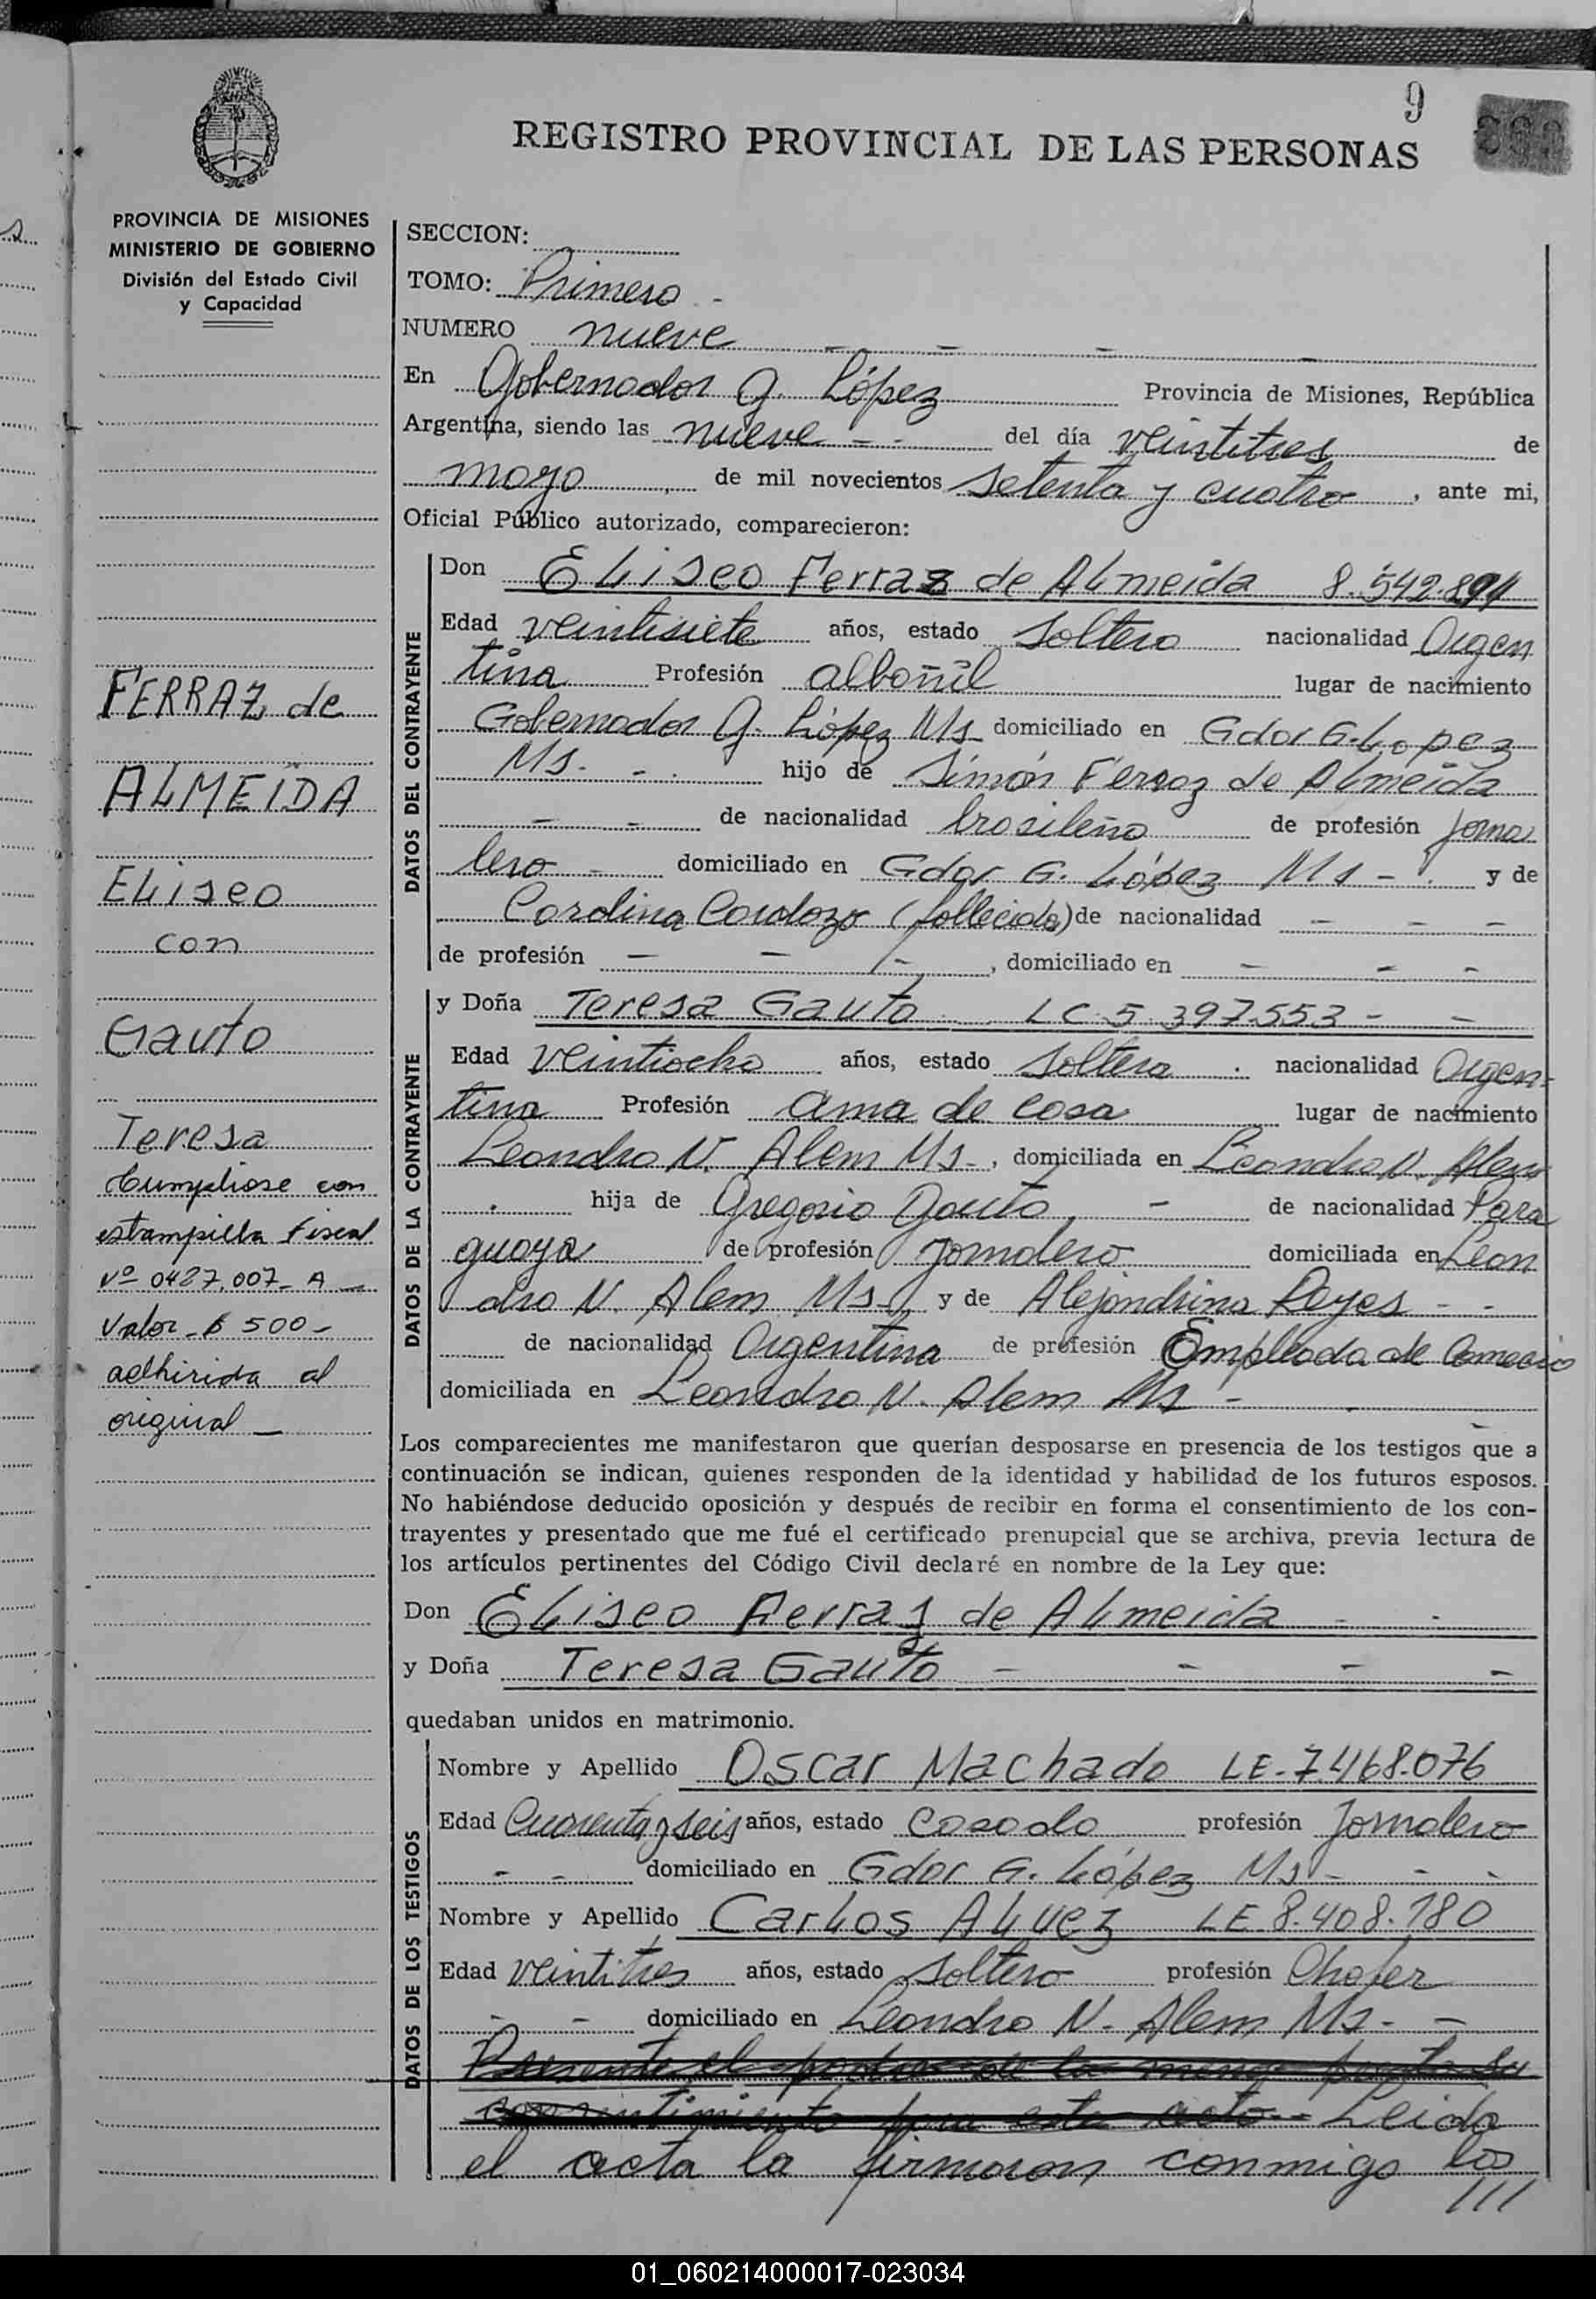 9
REGISTRO PROVINCIAL DE LAS PERSONAS
PROVINCIA DE MISIONES
MINISTERIO DE GOBIERNO
División del Estado Civil
y Capacidad
FERRAZ de
ALMEIDA
Eliseo
con
Gauto
Teresa
Cumpliose con
estampilla fiscal
Nº 0427.007 - A -
Valor - $ 500 -
adhirida al
original -
SECCION:
TOMO: Primero -
NUMERO nueve - - - -
En Gobernador G. López Provincia de Misiones, República
Argentina, siendo las nueve - - del día veintitres de
mayo, de mil novecientos setenta y cuatro, ante mi,
Oficial Público autorizado, comparecieron:
DATOS DEL CONTRAYENTE
Don Eliseo Ferraz de Almeida 8.542.894
Edad veintisiete años, estado soltero nacionalidad Argen
tina Profesión albañil lugar de nacimiento
Gobernador G. López Ms - domiciliado en Gdor G. Lopez
Ms. - . hijo de Simón Ferraz de Almeida
- - de nacionalidad brasileña de profesión Jorna
lero - domiciliado en Gdor G. López Ms - . y de
Carolina Cardozo (fallecida) de nacionalidad - - -
de profesión - - -, domiciliado en - - -
DATOS DE LA CONTRAYENTE
y Doña Teresa Gauto LC 5.397553 - -
Edad veintiocho años, estado soltera . nacionalidad Argen-
tina Profesión ama de casa lugar de nacimiento
Leandro N. Alem Ms -, domiciliada en Leandro N. Alem
. hija de Gregorio Gauto, - de nacionalidad Para
guaya de profesión jornalero domiciliada en Lean
dro N. Alem Ms - y de Alejandrina Reyes - -
de nacionalidad Argentina de profesión Empleada de Comercio
domiciliada en Leandro N. Alem Ms -
Los comparecientes me manifestaron que querían desposarse en presencia de los testigos que a
continuación se indican, quienes responden de la identidad y habilidad de los futuros esposos.
No habiéndose deducido oposición y después de recibir en forma el consentimiento de los con-
trayentes y presentado que me fué el certificado prenupcial que se archiva, previa lectura de
los artículos pertinentes del Código Civil declaré en nombre de la Ley que:
Don Eliseo Ferraz de Almeida - -
y Doña Teresa Gauto - - - -
quedaban unidos en matrimonio.
DATOS DE LOS TESTIGOS
Nombre y Apellido Oscar Machado LE - 7.468.076
Edad Cuarenta y seis años, estado casado profesión Jornalero
- - domiciliado en Gdor G. López Ms - - -
Nombre y Apellido Carlos Alvez LE 8.408.180
Edad veintitres años, estado soltero profesión Chofer
- - domiciliado en Leandro N. Alem Ms - -
Presente el padre de la menor presta su
consentimiento para este acto - Leida
el acta la firmaron conmigo los
///
01_060214000017-023034